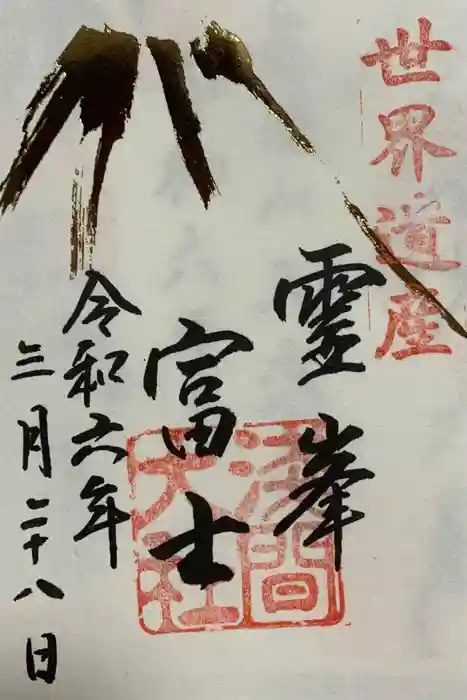 世界遺産
霊峯
富士
浅間
大社
令和六年
三月二十八日